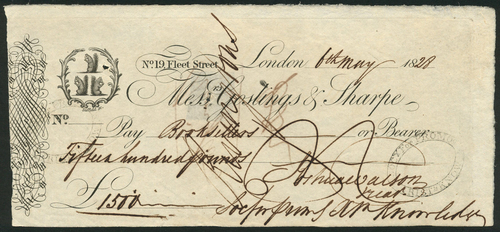 No. 19 Fleet Street, London 6th May 1828
Messrs. Goslings & Sharpe
No.
Pay Booksellers or Bearer
Fifteen hundred Pounds
Joshua Watson
£ 1500 Soc for Prom Xtn Knowledge